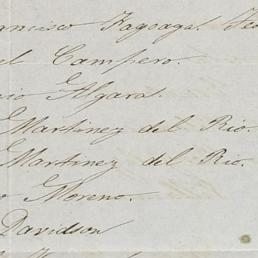 rancisco Fagoaga.
el Campero.
cio Algara.
Martinez del Rio.
Martinez del Rio.
o Moreno.
Davidson